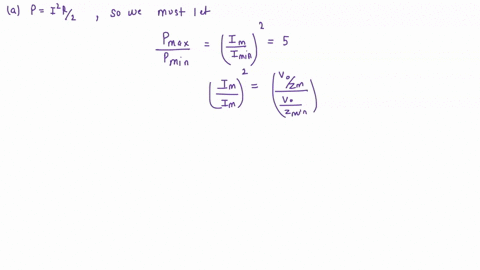 (a) P = I²R/2 , so we must let
P max / P min = (I m / I min)² = 5
(I m / I m)² = (V₀/Z m / V₀/Z min)